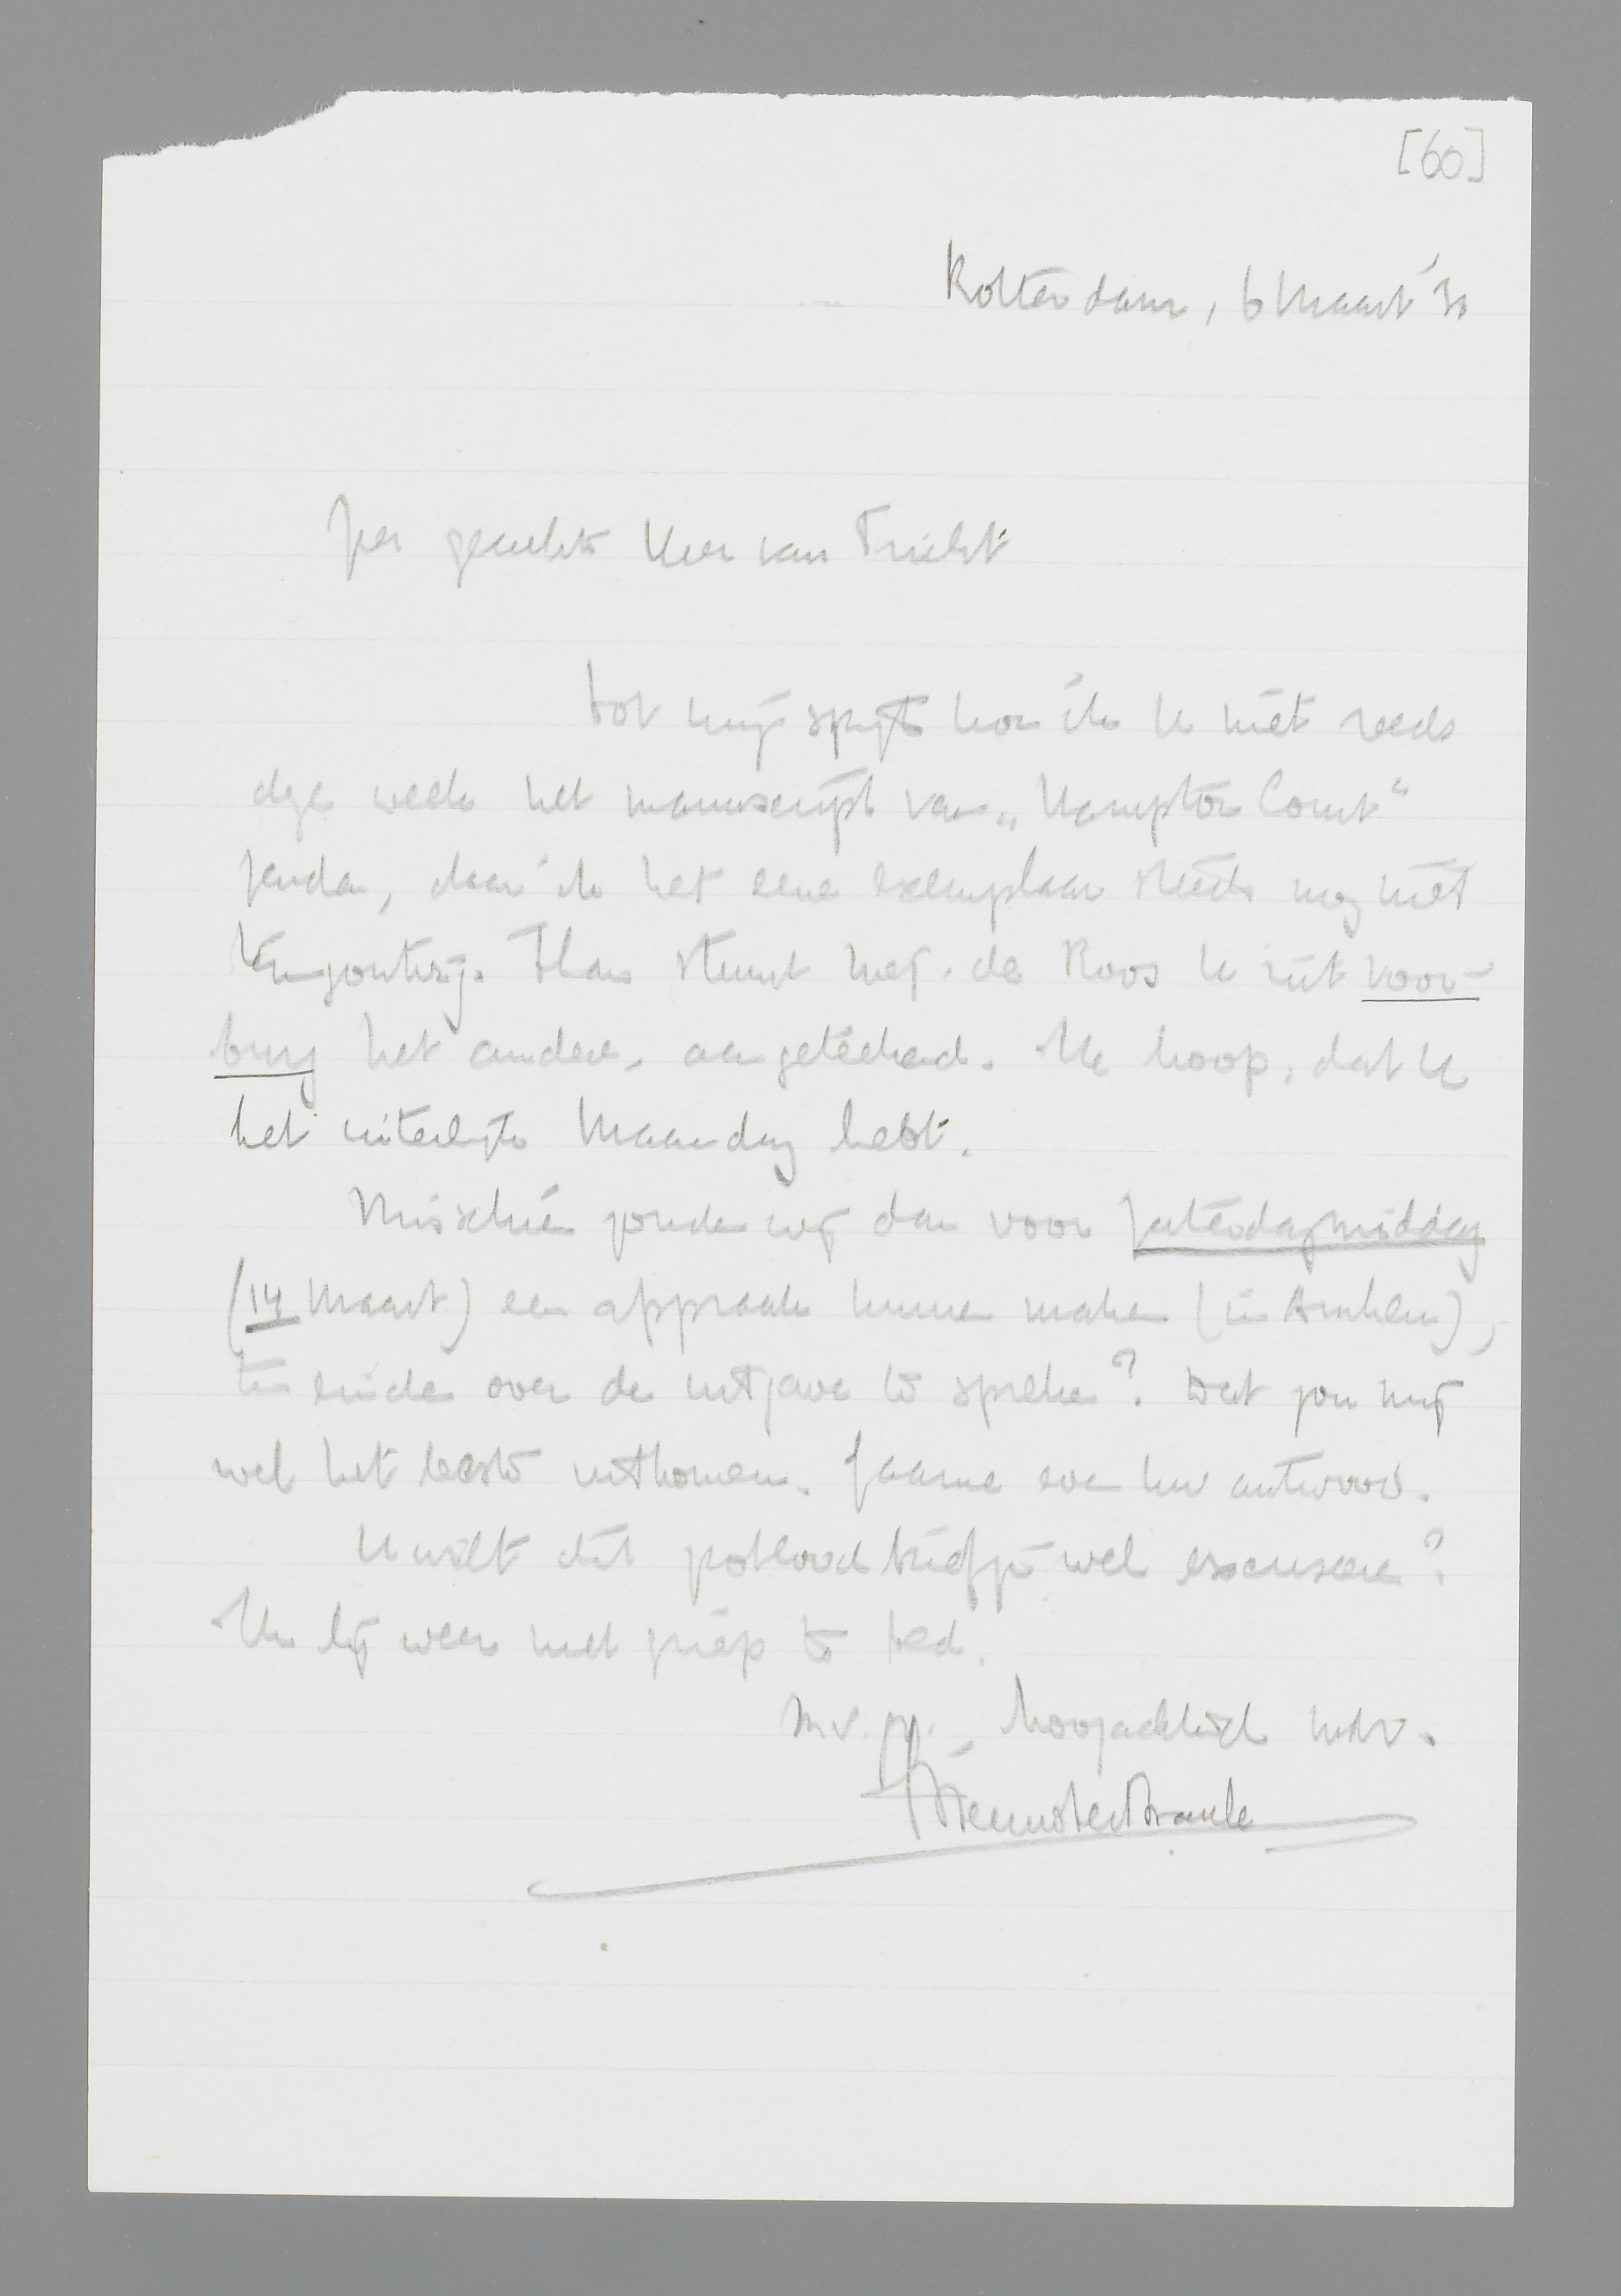 [60]
Rotterdam, 6 Maart '31
Zeer geachte Heer van Tricht
tot mijn spijt kon ik U niet reeds
deze week het manuscript van „Hampton Court"
zenden, daar ik het eene exemplaar steeds nog niet
terugontving. Thans stuurt mej. de Roos U uit Voor-
burg het andere, aangeteekend. Ik hoop, dat U
het uiterlijk Maandag hebt.
Misschien zouden wij dan voor Zaterdagmiddag
(14 Maart) een afspraak kunnen maken (in Arnhem),
ten einde over de uitgave te spreken? Dat zou mij
wel het beste uitkomen. Gaarne even Uw antwoord.
U wilt dit potloodbriefje wel excuseeren?
Ik lig weer met griep te bed.
m.v.gr., hoogachtend Uw dr.
Menno ter Braak